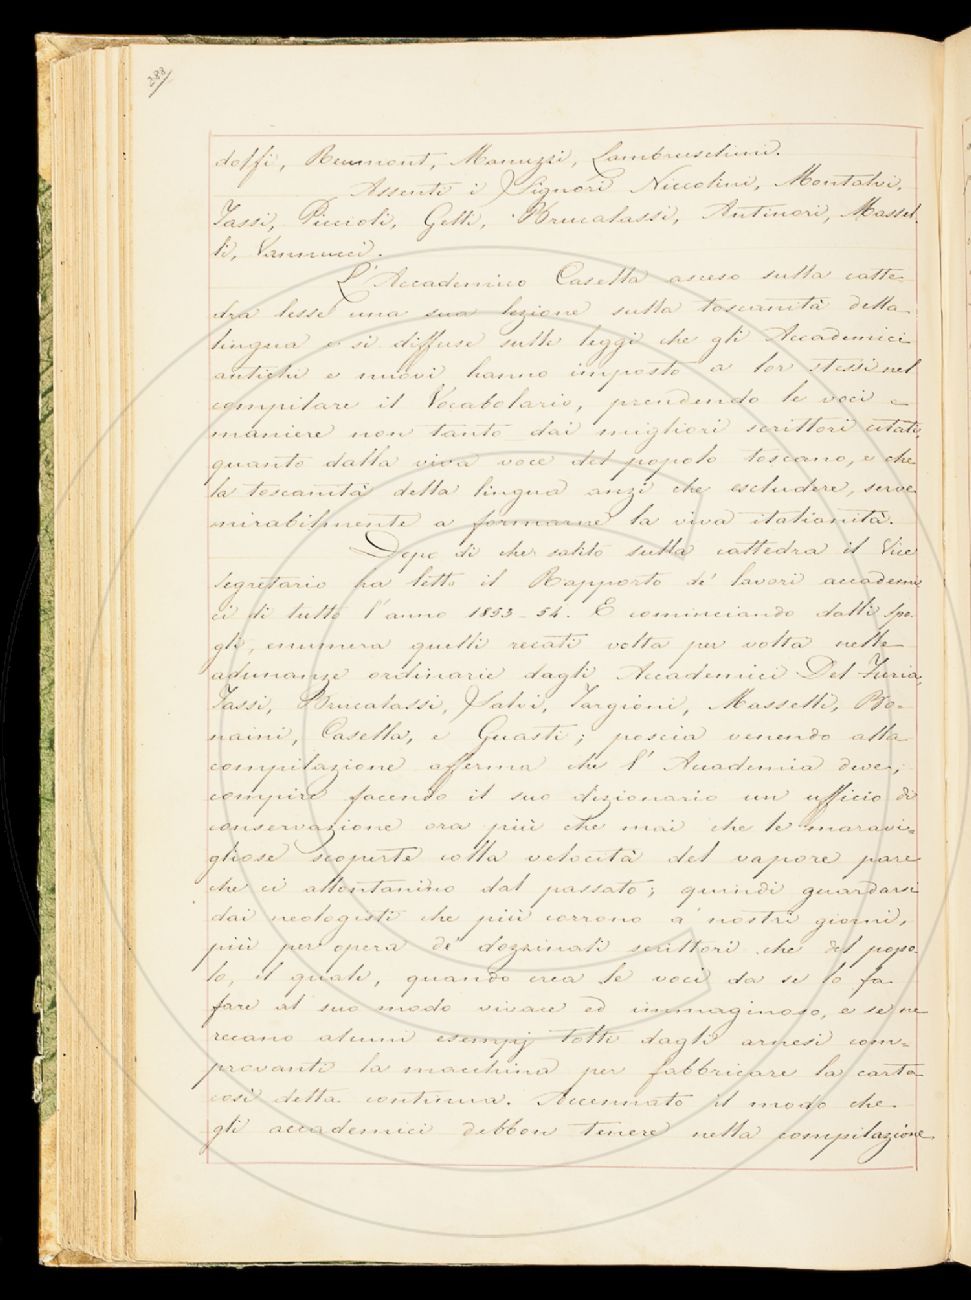 288
dolfi, Reumont, Manuzzi, Lambruschini.
Assenti i Signori Niccolini, Montalvi,
Tassi, Piccioli, Gelli, Brucalassi, Antinori, Massel
li, Vannucci.
L'Accademico Casella asceso sulla catte-
dra lesse una sua lezione sulla toscanità della
lingua e si diffuse sulle leggi che gli Accademici
antichi e nuovi hanno imposto a lor stessi nel
compilare il Vocabolario, prendendo le voci e
maniere non tanto dai migliori scrittori citati,
quanto dalla viva voce del popolo toscano, e che
la toscanità della lingua anzi che escludere, serve
mirabilmente a formarne la viva italianità.
Dopo di che salito sulla cattedra il Vice
segretario ha letto il Rapporto de' lavori accademi
ci di tutto l'anno 1853-54. E cominciando dalli spo-
gli, enumera quelli recati volta per volta nelle
adunanze ordinarie dagli Accademici Del Furia,
Tassi, Brucalassi, Salvi, Targioni, Masselli, Bo-
naini, Casella, e Guasti; poscia venendo alla
compilazione afferma che l'Accademia deve,
compire facendo il suo dizionario un ufficio di
conservazione ora più che mai che le maravi=
gliose scoperte colla velocità del vapore pare
che ci allontanino dal passato; quindi guardarsi
dai neologisti che più corrono a' nostri giorni,
più per opera de' dozzinali scrittori che del popo-
lo, il quale, quando crea le voci da se lo fa-
fare al suo modo vivace ed immaginoso, e se ne
recano alcuni esempj tolti dagli arnesi com=
provanti la macchina per fabbricare la carta
così detta continua. Accennato il modo che
gli accademici debbon tenere nella compilazione